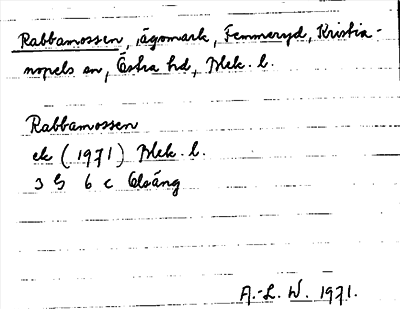 Rabbamossen, ägomark, Femmeryd, Kristia-
nopels sn, Östra hd, Blek. l.
Rabbamossen
ek (1971) Blek. l.
3 G 6 c Elsäng
A.-L. W. 1971.